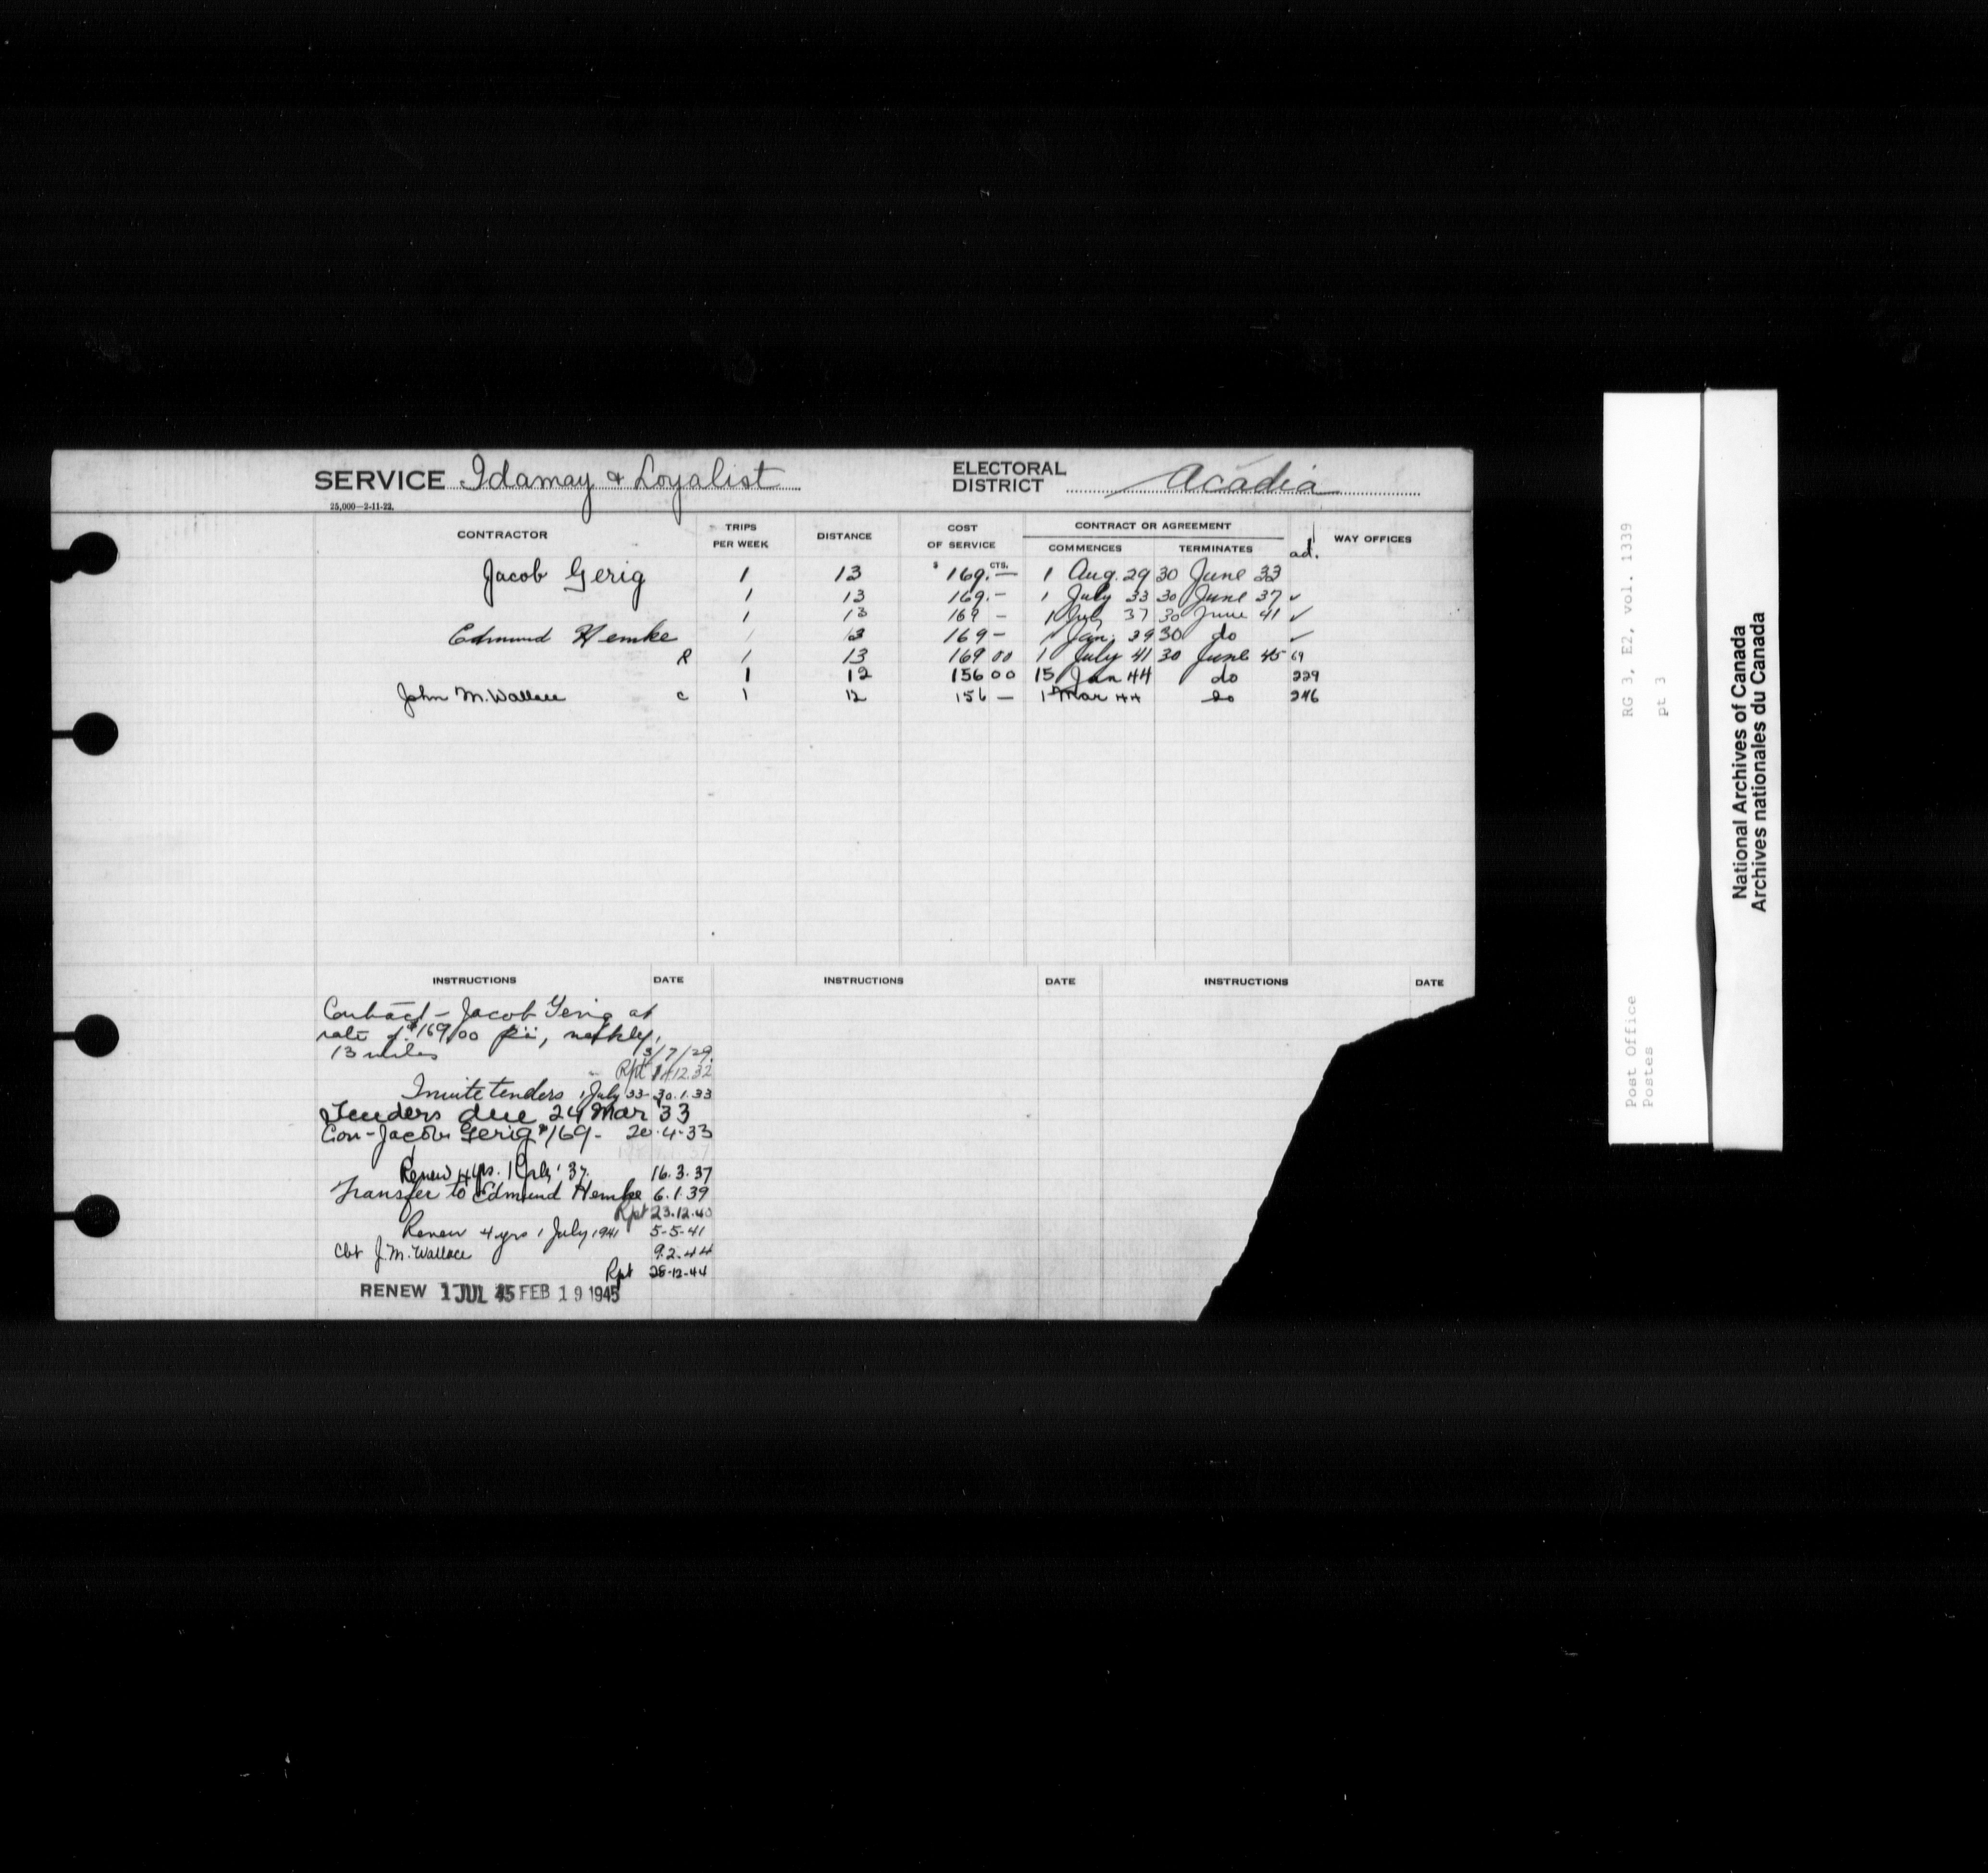 SERVICE Idamay & Loyalist ELECTORAL DISTRICT Acadia
25,000—2-11-22.
CONTRACTOR TRIPS PER WEEK DISTANCE COST OF SERVICE CONTRACT OR AGREEMENT COMMENCES TERMINATES ad. WAY OFFICES
$ CTS.
Jacob Gerig 1 13 169.— 1 Aug. 29 30 June 33
1 13 169.— 1 July 33 30 June 37 ✓
1 13 169 — 1 July 37 30 June 41 ✓
Edmund Hemke 1 13 169— 1 Jan. 39 30 do ✓
R 1 13 169 00 1 July 41 30 June 45 69
1 12 156 00 15 Jan 44 do 229
John M. Wallace c 1 12 156 — 1 Mar 44 do 246
INSTRUCTIONS DATE INSTRUCTIONS DATE INSTRUCTIONS DATE
Contract – Jacob Gerig at
rate of $169.00 weekly,
13 miles 13/7/29
Rpt 12.32
Invite tenders 1 July 33- 30.1.33
Tenders due 24 Mar 33
Con-Jacob Gerig $169- 20-4-33
Renew 4 yrs. 1 July '37. 16.3.37
Transfer to Edmund Hemke 6.1.39
Rpt 23.12.40
Renew 4 yrs 1 July 1941 5-5-41
Cbt J. M. Wallace 9.2.44
Rpt 28-12-44
RENEW 1 JUL 45 FEB 19 1945
RG 3, E2, vol. 1339
pt 3
Post Office
Postes
National Archives of Canada
Archives nationales du Canada